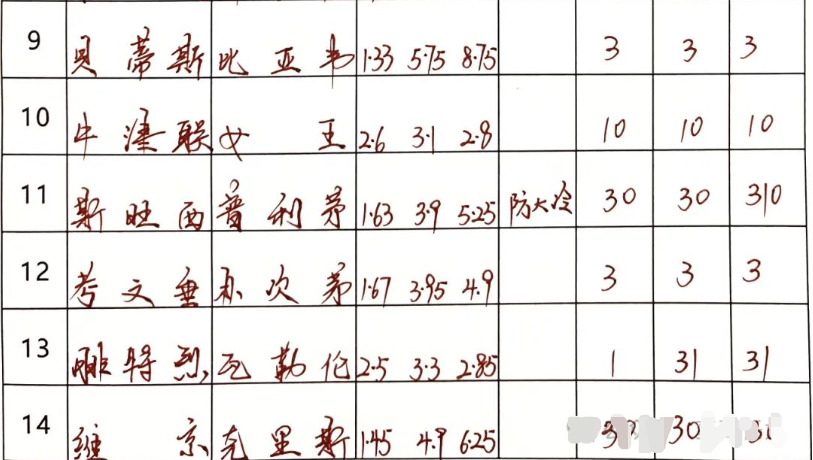 9 贝蒂斯 比亚韦 1.33 5.75 8.75 3 3 3
10 牛津联 女王 2.6 3.1 2.8 10 10 10
11 斯旺西 普利茅 1.63 3.9 5.25 防大冷 30 30 310
12 考文垂 朴次茅 1.67 3.95 4.9 3 3 3
13 腓特烈 瓦勒伦 2.5 3.3 2.85 1 31 31
14 维京 克里斯 1.45 4.9 6.25 30